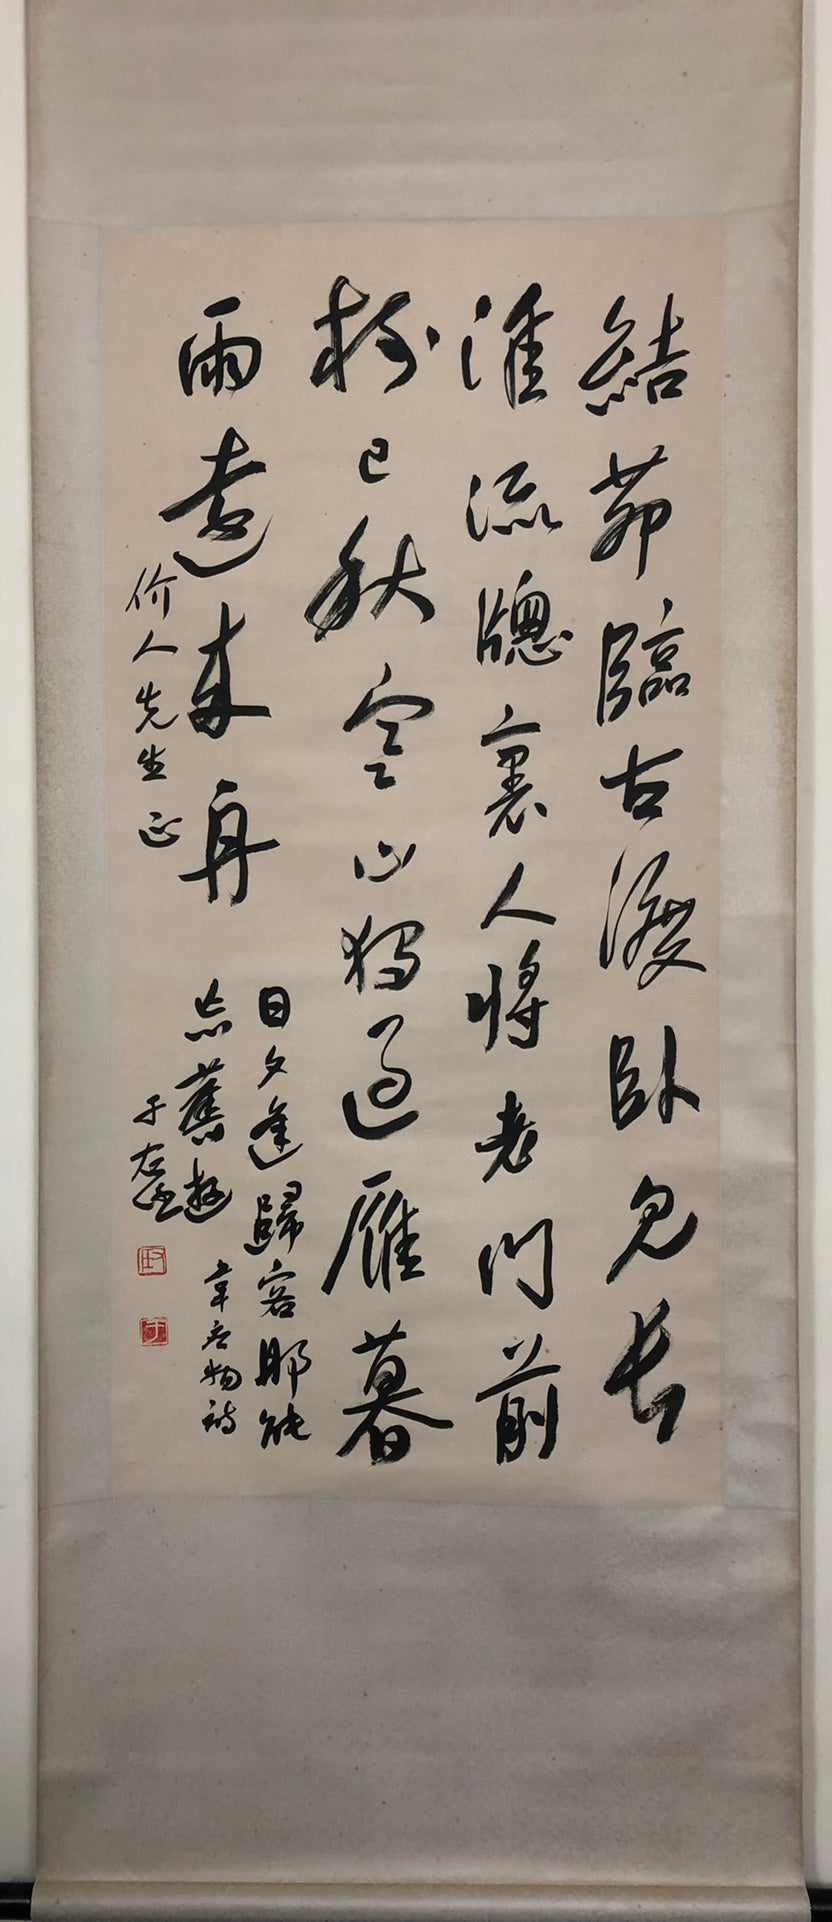 結茆臨古渡臥見長
淮流牕裏人將老門前
樹已秋空山獨過雁暮
雨遠來舟
日夕逢歸客那能
忘舊遊
韋應物詩
价人先生正
于右任